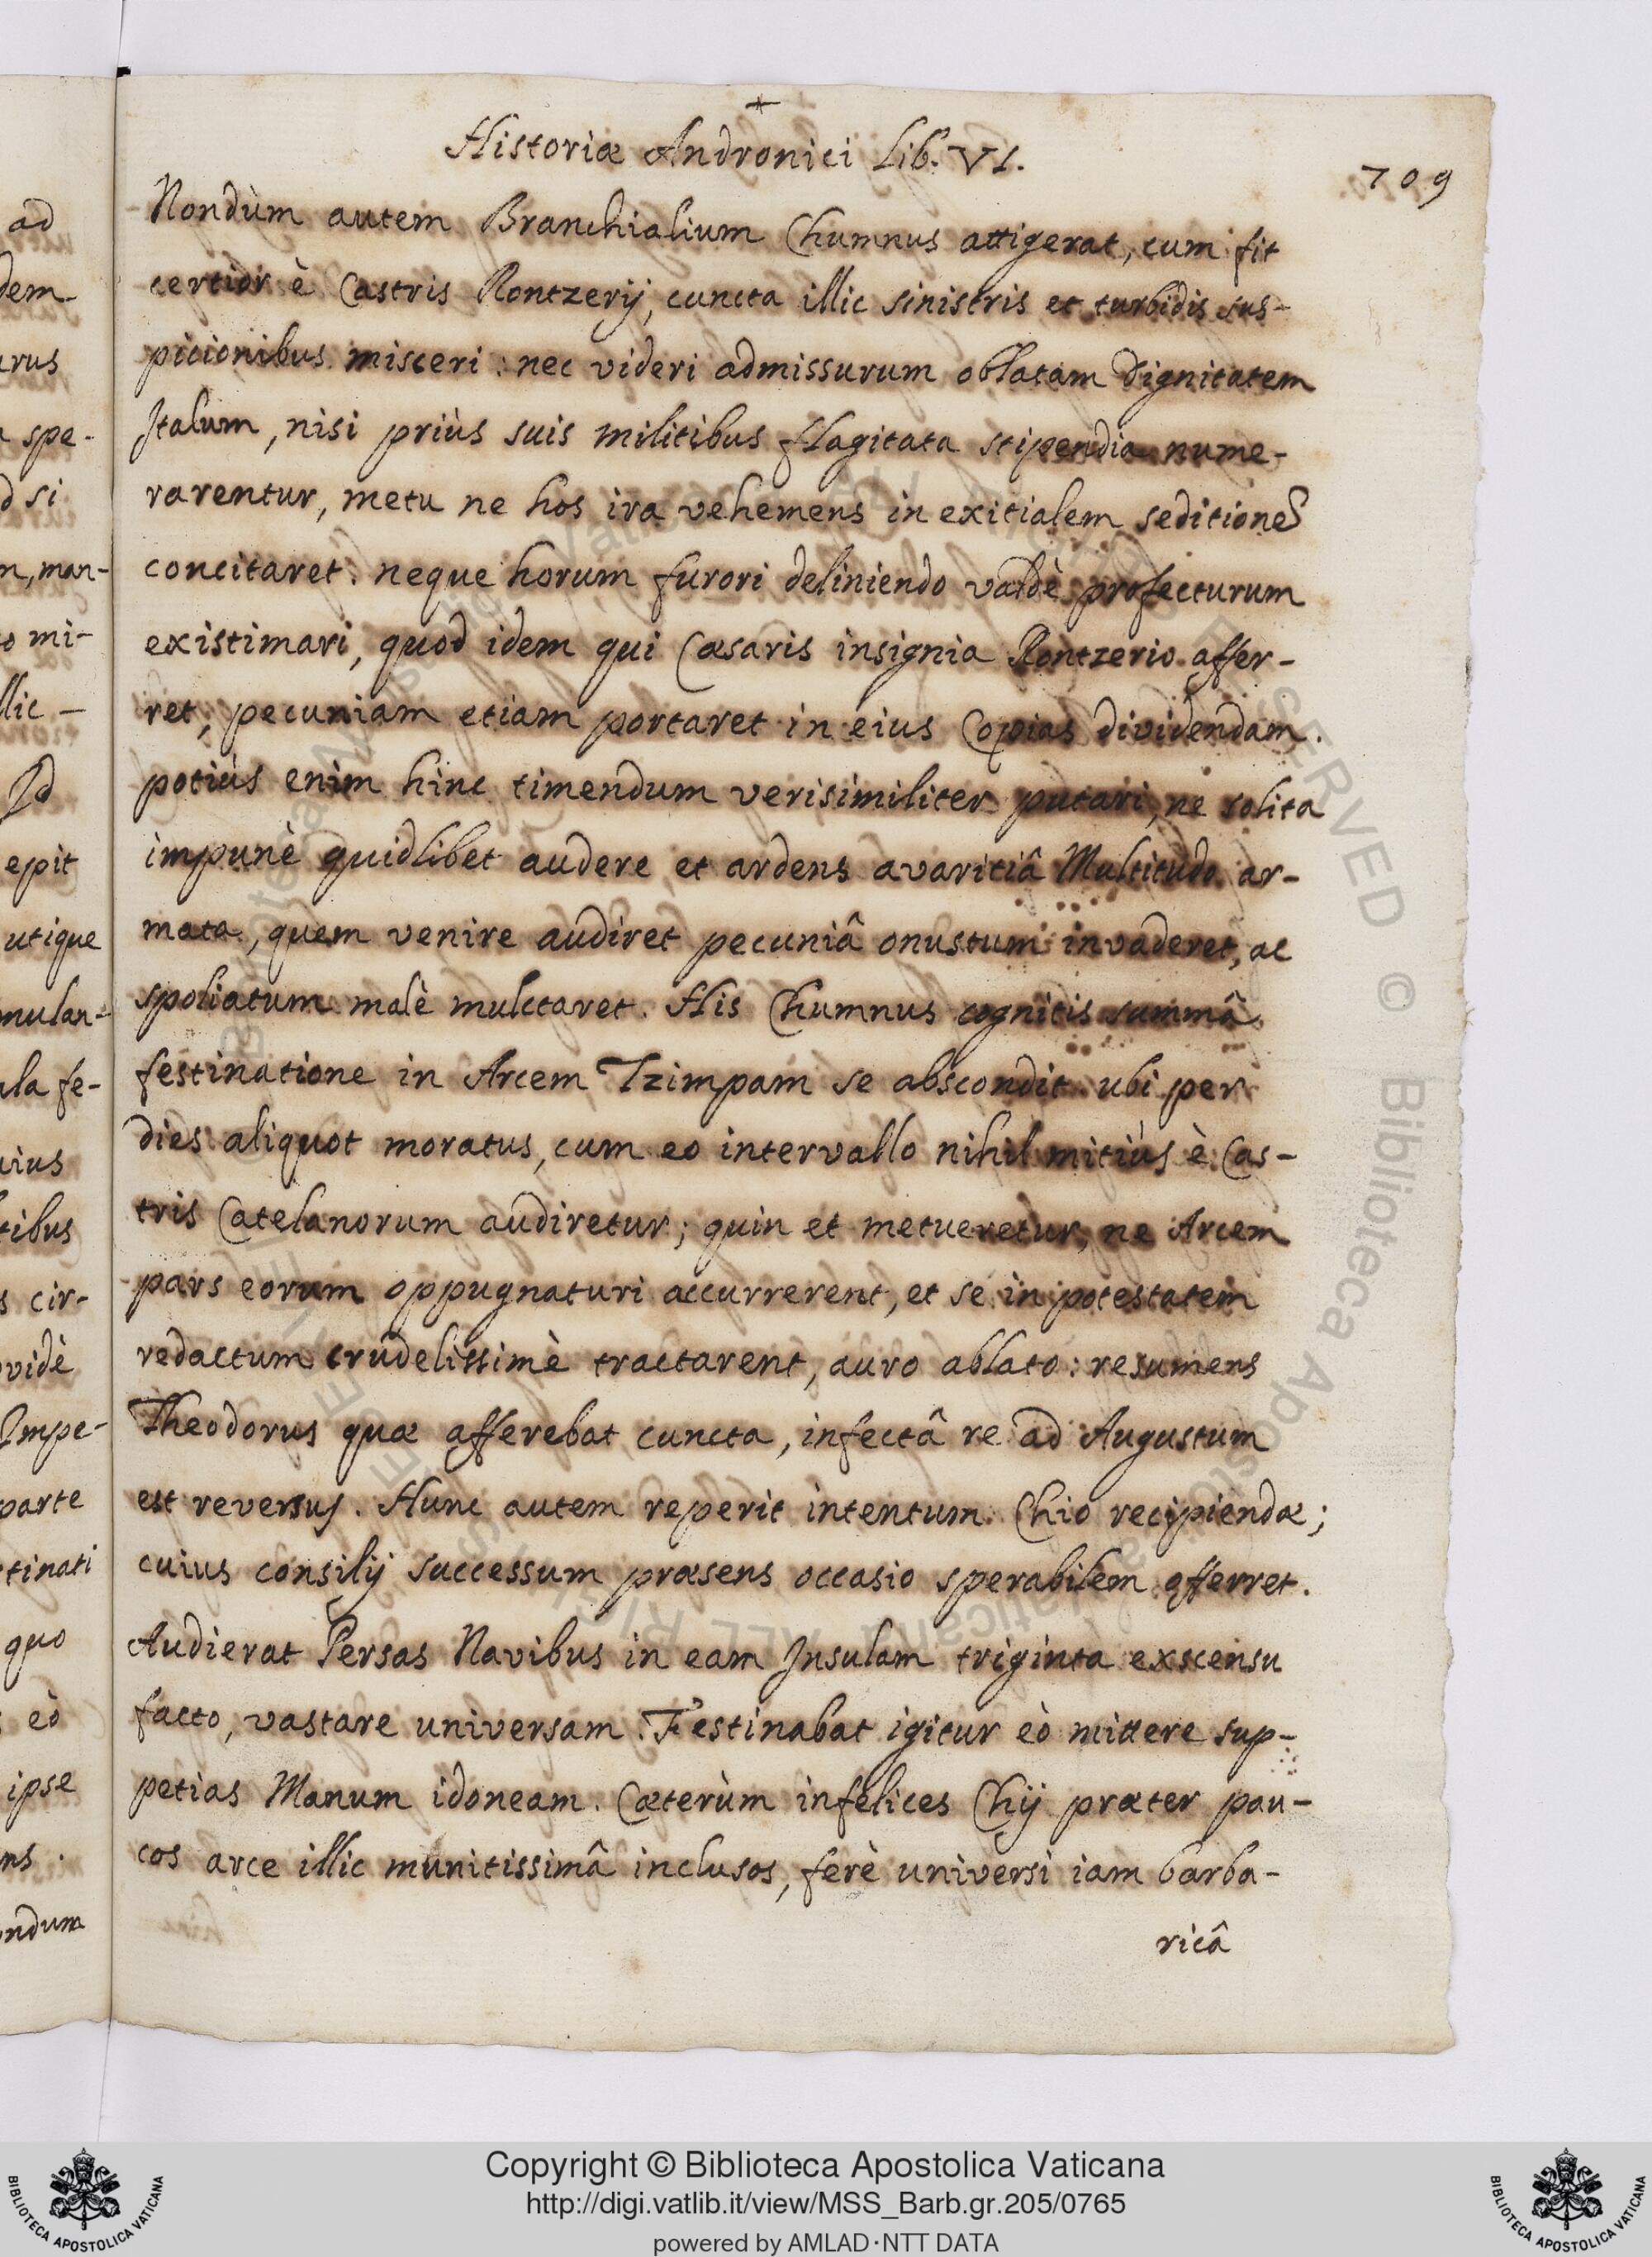 Historiæ Andronici Lib. VI.
709
Nondùm autem Branchialium Chumnus attigerat, cum fit
certior è Castris Rontzerij, cuncta illic sinistris et turbidis sus-
picionibus misceri: nec videri admissurum oblatam dignitatem
Italum, nisi priùs suis militibus flagitata stipendia nume-
rarentur, metu ne hos ira vehemens in exitialem seditionẽ
concitaret. neque horum furori deliniendo valdè profecturum
existimari, quod idem qui Cæsaris insignia Rontzerio affer-
ret, pecuniam etiam portaret in eius Copias dividendam.
potiùs enim hinc timendum verisimiliter putari, ne solita
impunè quidlibet audere et ardens avaritiâ Multitudo ar-
mata, quem venire audiret pecuniâ onustum invaderet, ac
spoliatum malè mulctaret. His Chumnus cognitis summâ
festinatione in Arcem Tzimpam se abscondit. ubi per
dies aliquot moratus, cum eo intervallo nihil mitiùs è Cas-
tris Catelanorum audiretur; quin et metueretur, ne Arcem
pars eorum oppugnaturi accurrerent, et se in potestatem
redactum crudelissimè tractarent, auro ablato: resumens
Theodorus quæ afferebat cuncta, infectâ re ad Augustum
est reversus. Hunc autem reperit intentum Chio recipiendæ;
cuius consilij successum præsens occasio sperabilem offerret.
Audierat Persas Navibus in eam Insulam triginta exscensu
facto, vastare universam. Festinabat igitur eò mittere sup-
petias Manum idoneam. Cæterùm infelices Chij præter pau-
cos arce illic munitissimâ inclusos, ferè universi iam barba-
ricâ
ad
dem-
rus
spe-
d si
n, man-
o mi-
llic -
Id
epit
utique
mulan-
ula fe-
uius
tibus
s cir-
vidè
Impe-
parte
tinati
quo
eò
ipse
ns.
ondum
Copyright © Biblioteca Apostolica Vaticana
http://digi.vatlib.it/view/MSS_Barb.gr.205/0765
powered by AMLAD·NTT DATA
BIBLIOTECA APOSTOLICA VATICANA
BIBLIOTECA APOSTOLICA VATICANA